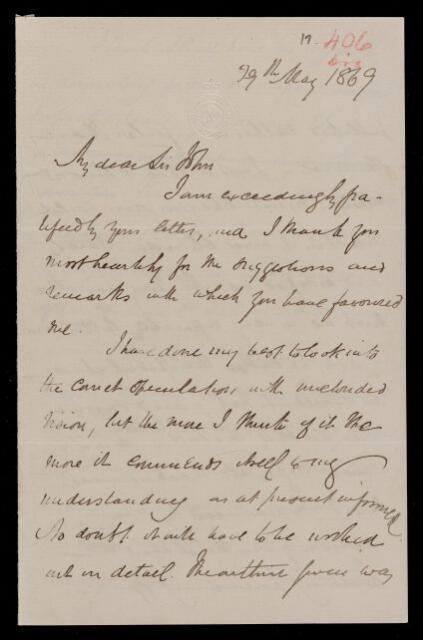 17. 406
29th May 1869
My dear Sir John
I am exceedingly gra-
tified by your letter, and I thank you
most heartily for the suggestions and
remarks with which you have favoured
me.
I have done my best to look into
the comet speculation with unclouded
vision, but the more I think of it the
more it commends itself to my
understanding as at present informed.
No doubt it will have to be worked
out in detail. The outline given was